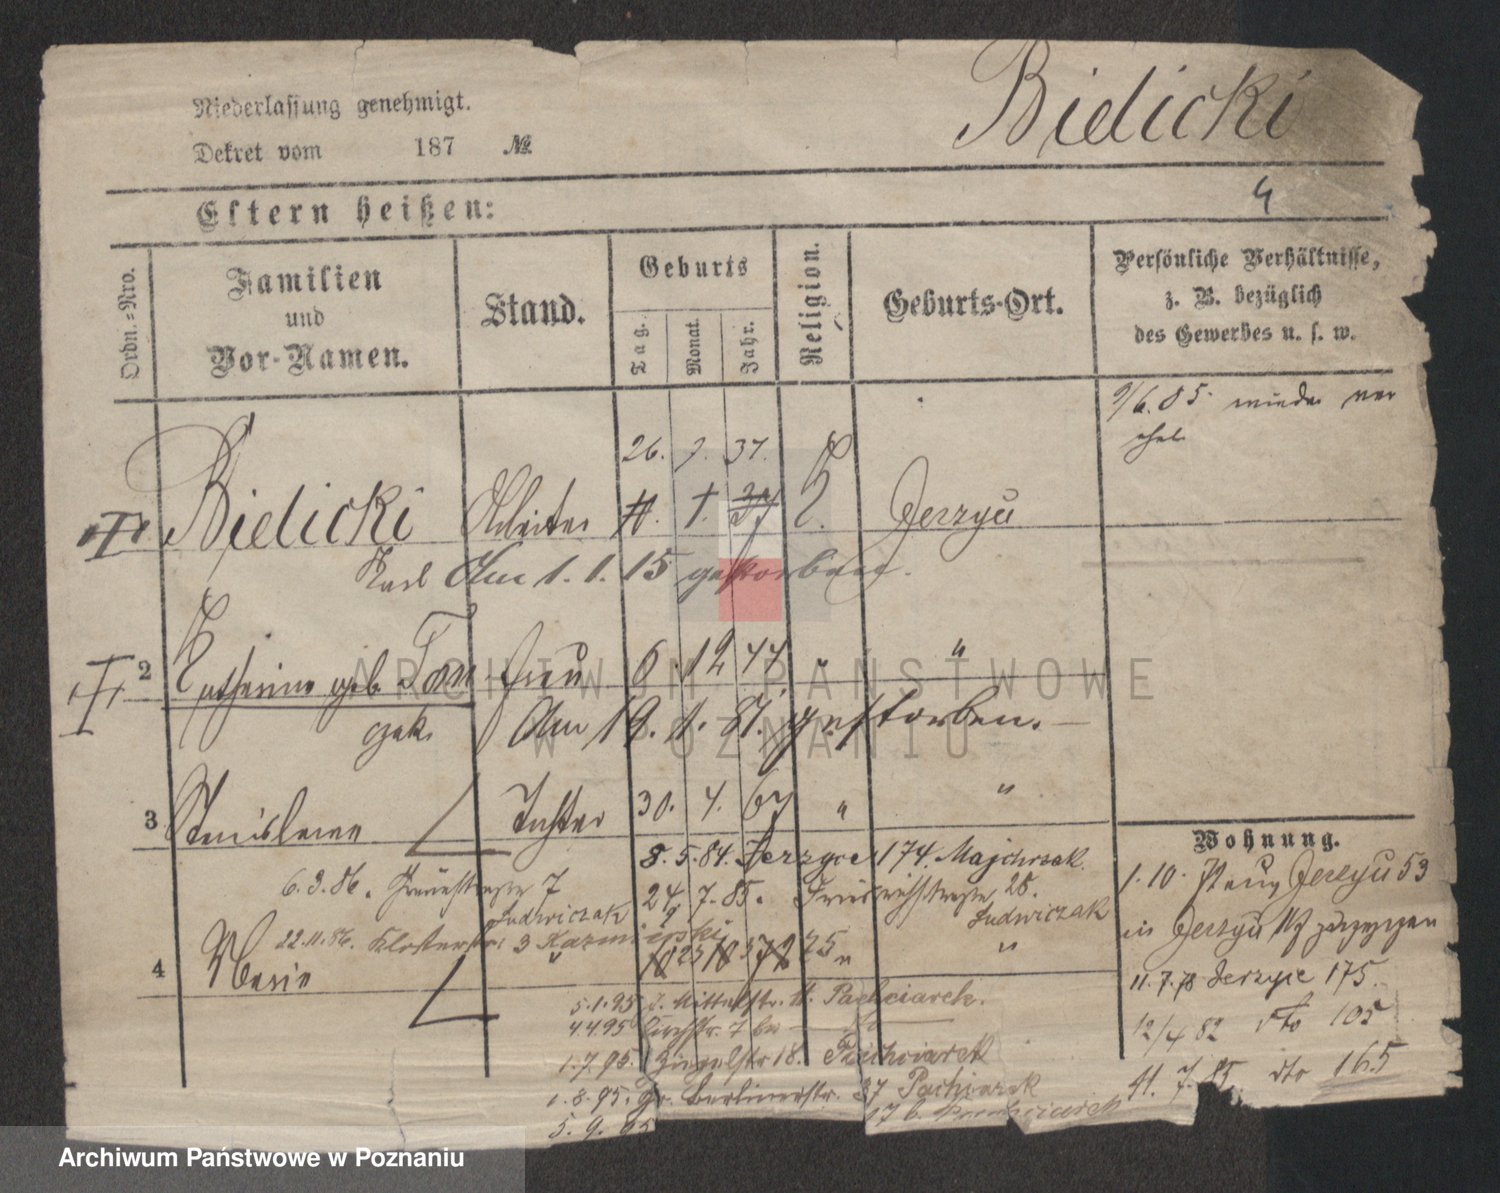 Bielicki
Niederlassung genehmigt.
Dekret vom 187 №
4
Eltern heißen:
Ordn.=Nro.
Familien
und
Vor-Namen.
Stand.
Geburts
Tag.
Monat.
Jahr.
Religion.
Geburts-Ort.
Persönliche Verhältnisse,
z. B. bezüglich
des Gewerbes u. s. w.
9/6. 85. wieder ver
ehel.
26. 7. 37.
Bielicki Arbeiter 1. Jerzyce
Karl Am 1. 1. 15 gestorben.
2 Catharina geb. Frau 6. 12 44 "
Am 19. 1. 81. gestorben.
3 Stanislawa Tochter 30. 4. 67 " "
Wohnung.
8. 5. 84. Jerzyce 174. Majchrzak.
6. 3. 86. 7 24. 7. 85. 28.
Ludwiczak Ludwiczak
22.11.86. Klosterstr. 3 Kazmierski
4 Marie 25 75 " "
1. 10. Jerzyce 53
in Jerzyce
11. 7. 78 Jerzyce 175.
12/4 82 dto 105
11. 7. 85. dto 165
5.1.95 Mittelstr. 11. Pachciarek.
4.4.95 7
1.7.95. 18. Pachciarek
1.8.95. Gr. Berlinerstr. 37 Pachciarek
5. 9. 95
ARCHIWUM PAŃSTWOWE
W POZNANIU
Archiwum Państwowe w Poznaniu